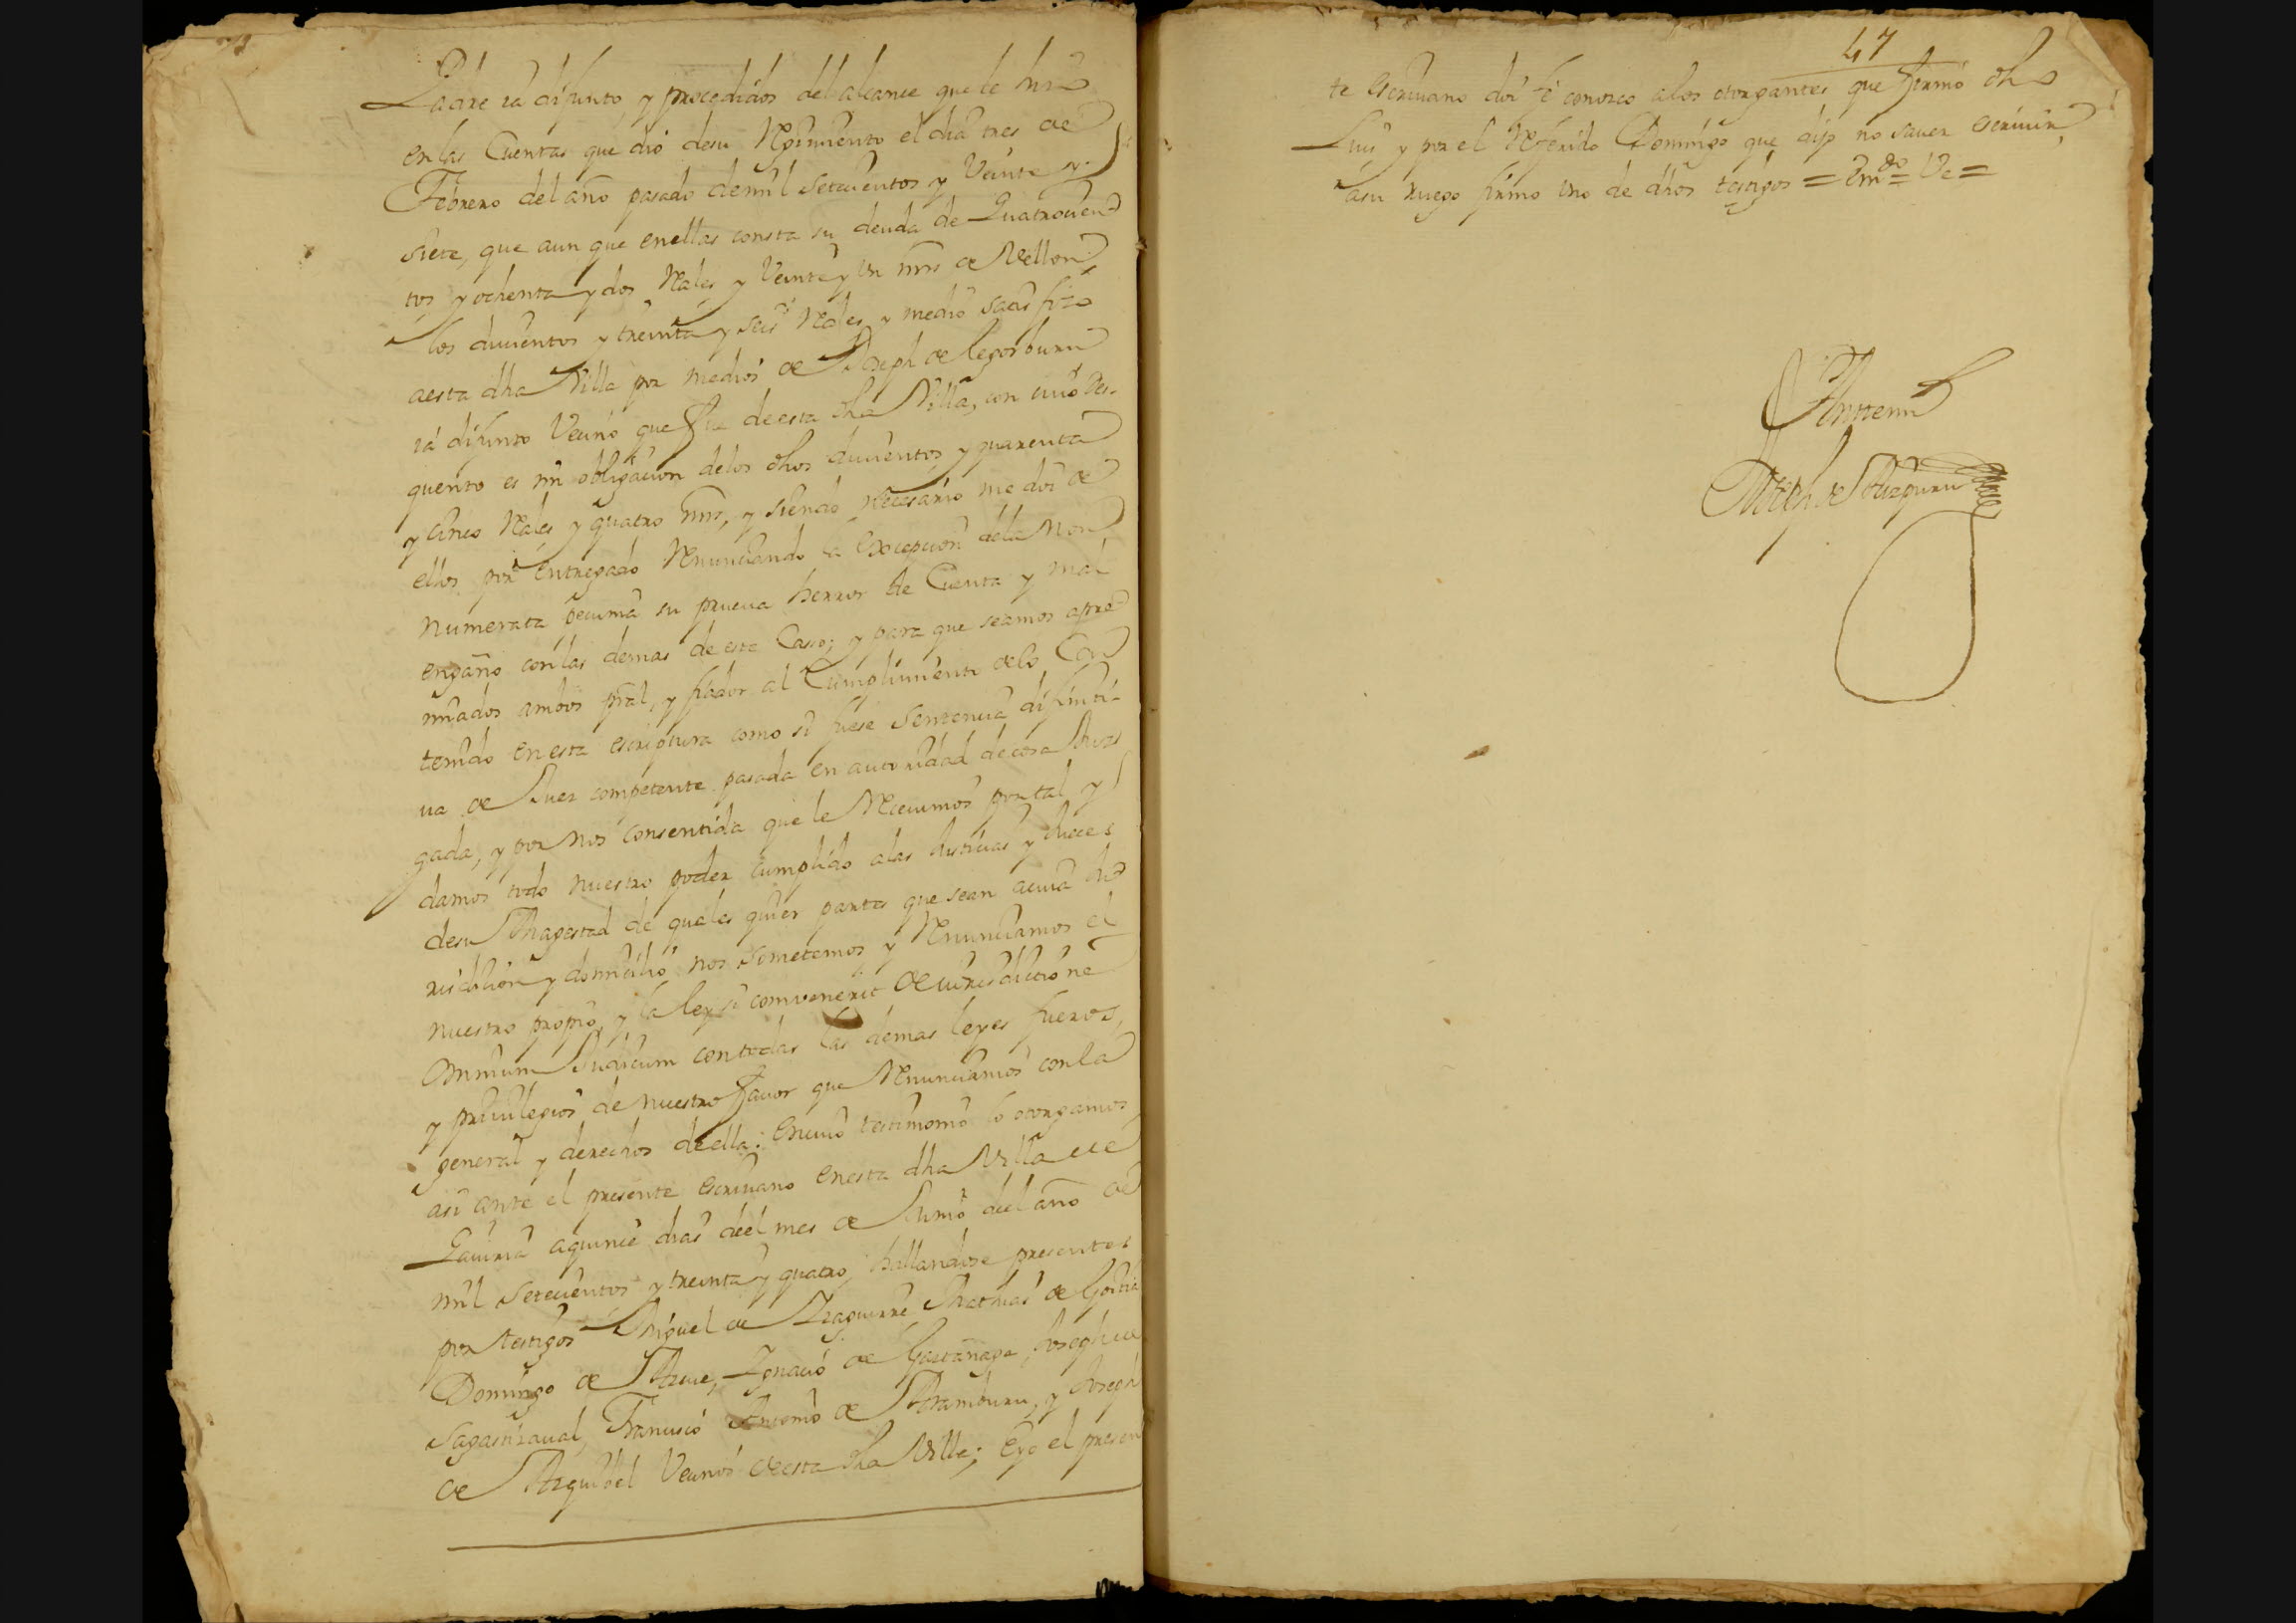 Padre ia difunto, y procedidos del alcance que le hizo
en las Cuentas que dio desu Regimiento el dia tres de
Febrero del año pasado demil setecientos y Veinte y
siete, que aun que enellas consta su deuda de Quatrocien
tos y ochenta y dos Reales y Veinte y Un mrs de Vellon,
los ducientos y treinta y seis Reales y medio satisfizo
aesta dha Villa por medios de Joseph de Legorburu
iá difunto Vecino que fue deesta dha Villa, con cuio des-
quento es mi obligacion delos dhos ducientos y quarenta
y cinco Reales y quatro mrs, y siendo Necesario me doi de
ellos por entregado Renunciando la Excepcion dela Non
numerata pecunia su prueua herror de Cuenta y mal
engaño con las demas de este Casso; y para que seamos apre
miados ambos pral, y fiador al Cumplimiento delo Con
tenido en esta escriptura como si fuese Sentencia difiniti-
ua de Juez competente pasada en autoridad de cosa Juzs
gada, y por nos consentida que le Reciuimos por tal y
damos todo nuestro poder cumplido alas Justicias y Jueces
desu Magestad de quales quier partes que sean acuia Ju
risdicion y domicilio nos sometemos y Renunciamos el
nuestro propio, y la ley si convenerit de iurisdictione
Omnium Judicum con todas las demas leyes fueros,
y priuilegios de nuestro fauor que Renunciamos con la
general y derechos de ella: Encuio testimonio lo otorgamos
asi ante el presente escriuano enesta dha Villa de
Gauiria aquince dias deel mes de Junio deel año de
mil Setecientos y treinta y quatro, hallandose presentes
por testigos Miguel de Izaguirre Mathias de Goitia
Domingo de Arcue, Ignacio de Gastañaga, Joseph de
Sagastizaual, Francisco Antonio de Aramburu, y Joseph
de Arguisel Vecinos deesta dha Villa; Eyo el presen
47
te Escriuano doi fé conozco alos otorgantes que firmó dho
Luis y por el Referido Domingo que dijo no sauer escriuir,
asu ruego firmo uno de dhos testigos = Emdo = Ve =
Ante mi
Joseph de